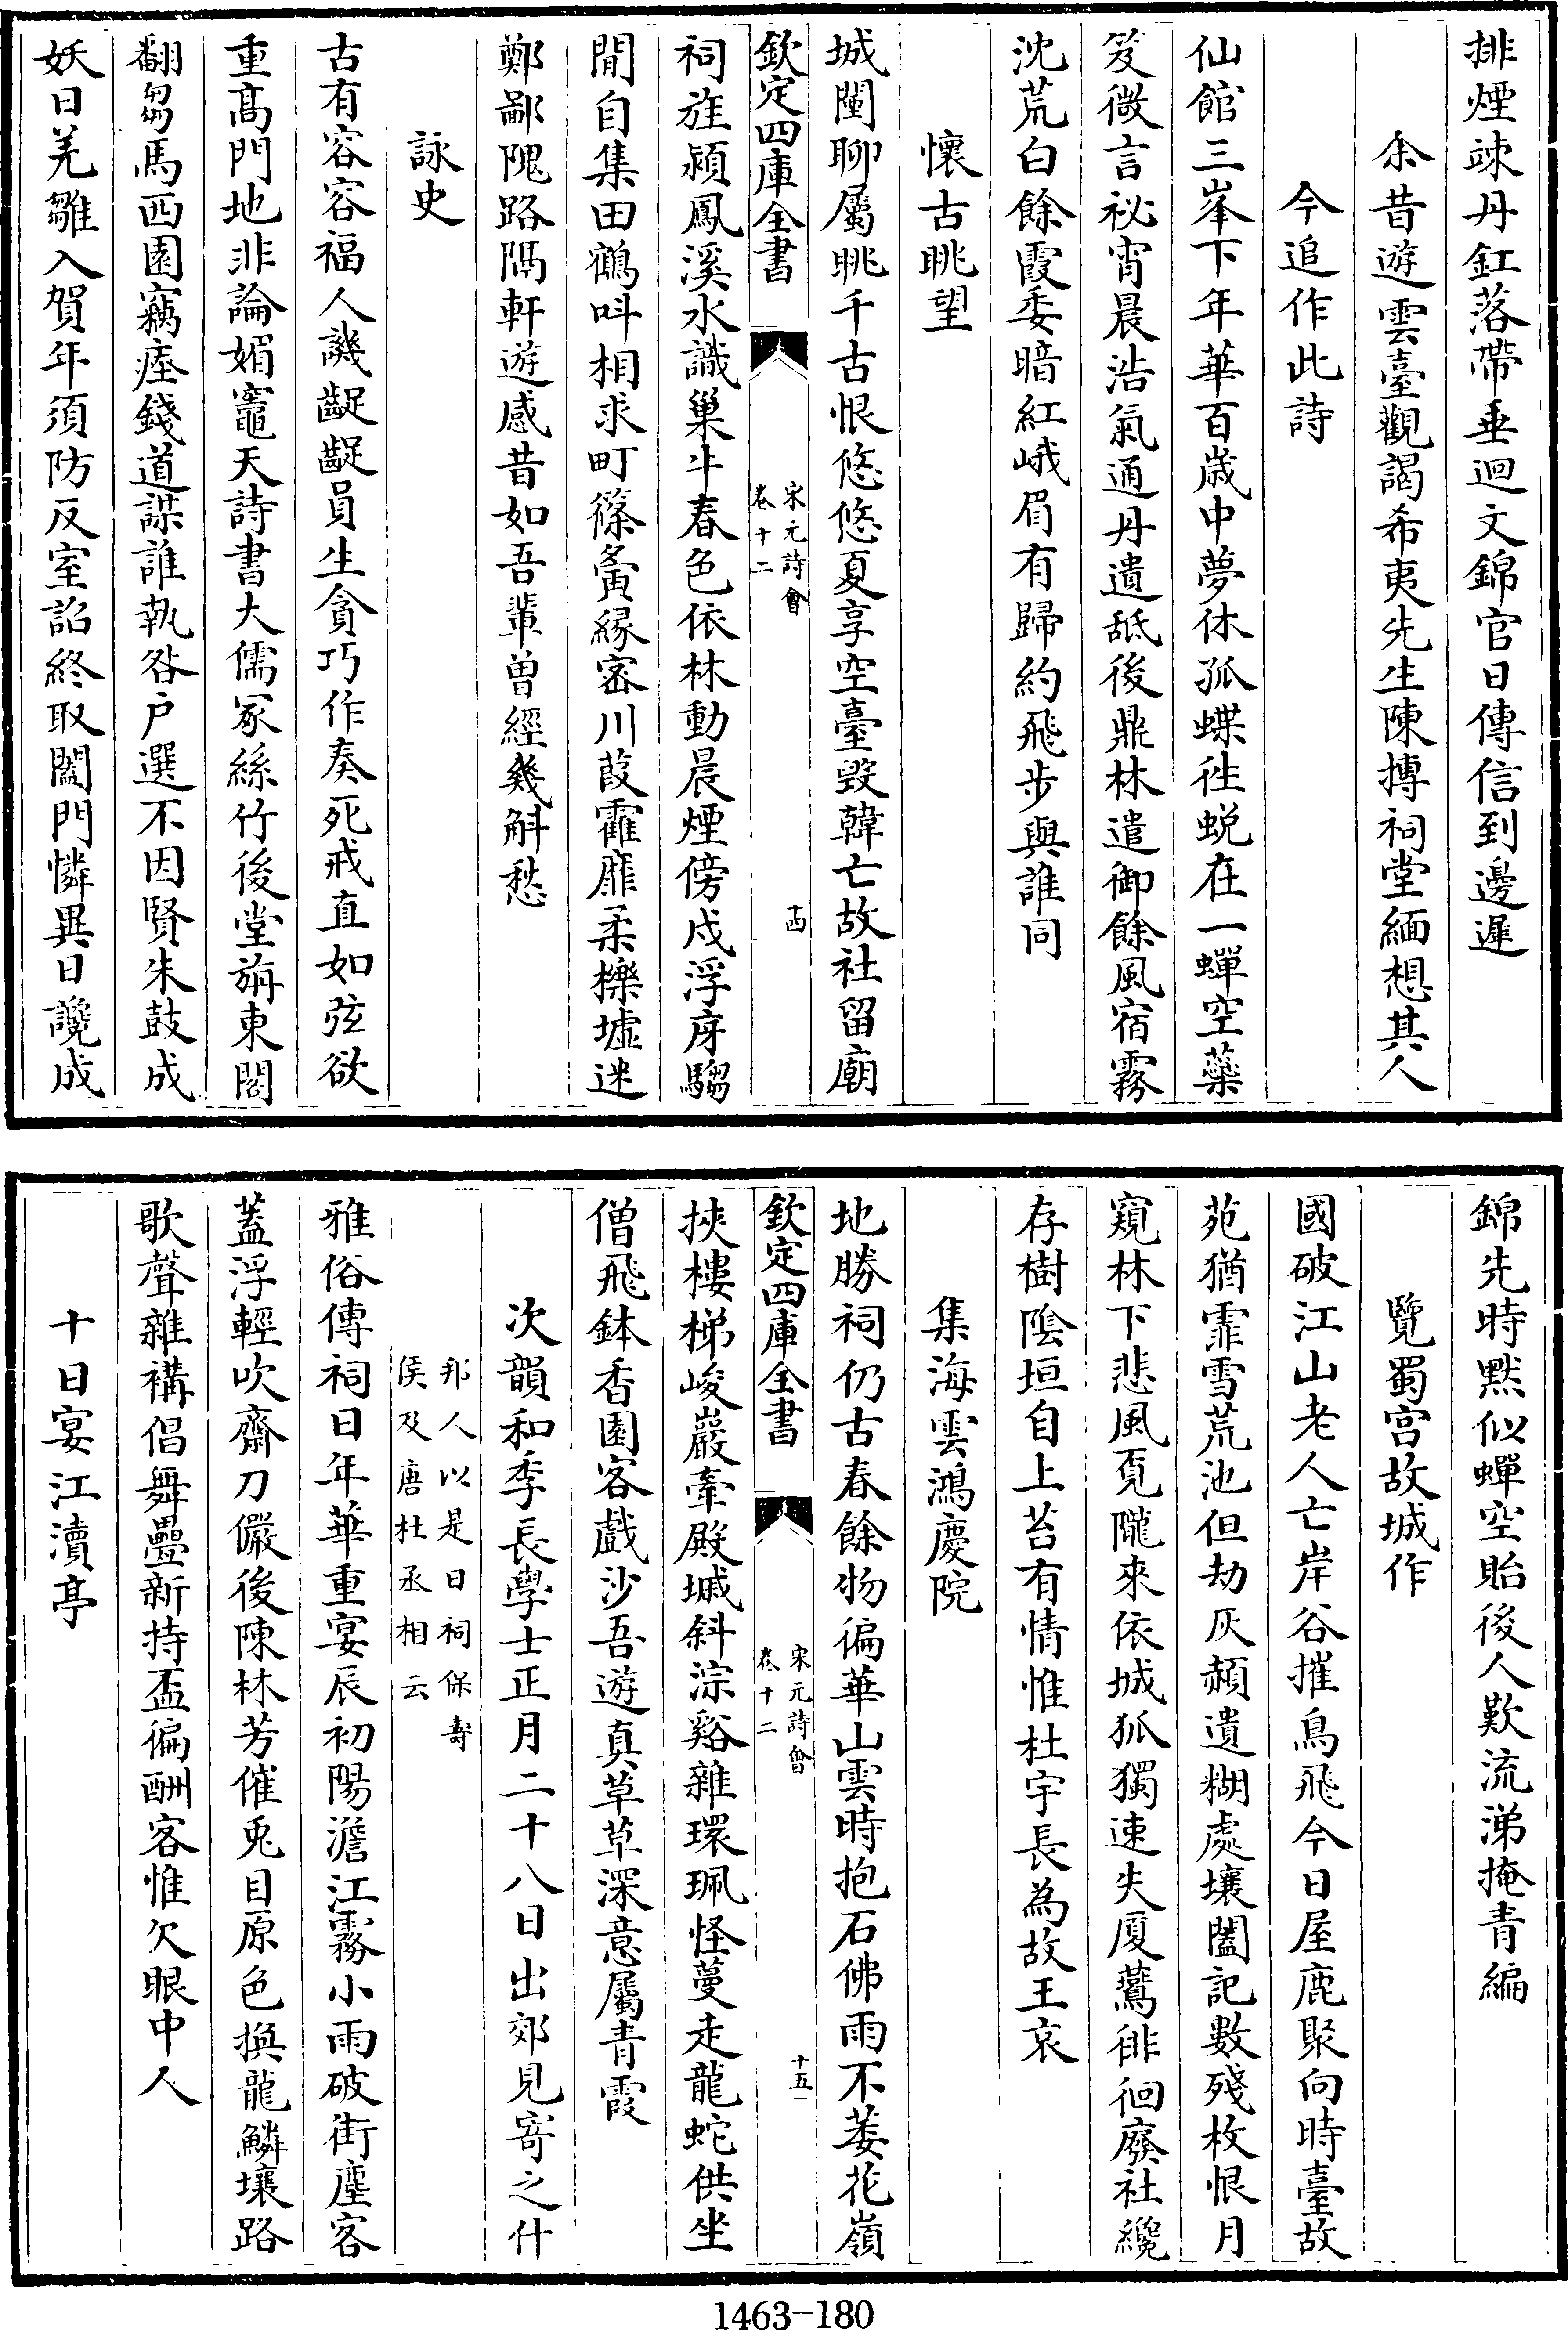 排煙疎丹釭落帶垂迴文錦官日傳信到邊遲
余昔遊雲臺觀謁希夷先生陳摶祠堂緬想其人
今追作此詩
仙館三峯下年華百歲中夢休孤蝶往蛻在一蟬空藥
笈微言祕宵晨浩氣通丹遺舐後鼎林遣御餘風宿霧
沈荒白餘霞委暗紅峨眉有歸約飛步與誰同
懷古眺望
城闉聊屬眺千古恨悠悠夏享空臺毀韓亡故社留廟
欽定四庫全書
宋元詩會
卷十二
十四
祠旌潁鳳溪水識巢牛春色依林動晨煙傍戍浮庌騶
閒自集田鶴呌相求町篠夤緣密川葭靃靡柔櫟墟迷
鄭鄙隗路隔軒遊感昔如吾輩曽經幾斛愁
詠史
古有容容福人譏齪齪員生貪巧作奏死戒直如弦欲
重髙門地非論媚竈天詩書大儒冢絲竹後堂旃東閣
翻芻馬西園竊瘞錢道謀誰執咎戶選不因賢朱鼓成
妖日羌雛入賀年須防反室詒終取闔門憐異日讒成
錦先時黙似蟬空貽後人歎流涕掩青編
覽蜀宫故城作
國破江山老人亡岸谷摧鳥飛今日屋鹿聚向時臺故
苑猶霏雪荒池但劫灰頳遺糊處壤闔記數殘枚恨月
窺林下悲風覔隴來依城狐獨速失廈鷰徘徊廢社纔
存樹隂垣自上苔有情惟杜宇長為故王哀
集海雲鴻慶院
地勝祠仍古春餘物徧華山雲時抱石佛雨不萎花嶺
欽定四庫全書
宋元詩會
卷十二
十五
挾樓梯峻巖牽殿城斜淙谿雜環珮怪蔓走龍蛇供坐
僧飛鉢香園客戲沙吾遊真草草深意屬青霞
次韻和季長學士正月二十八日出郊見寄之什
邦人以是日祠保壽
侯及唐杜丞相云
雅俗傳祠日年華重宴辰初陽澹江霧小雨破街塵客
蓋浮輕吹齋刀儼後陳林芳催兎目原色換龍鱗壤路
歌聲雜褠倡舞疊新持盃徧酬客惟欠眼中人
十日宴江瀆亭
1463-180